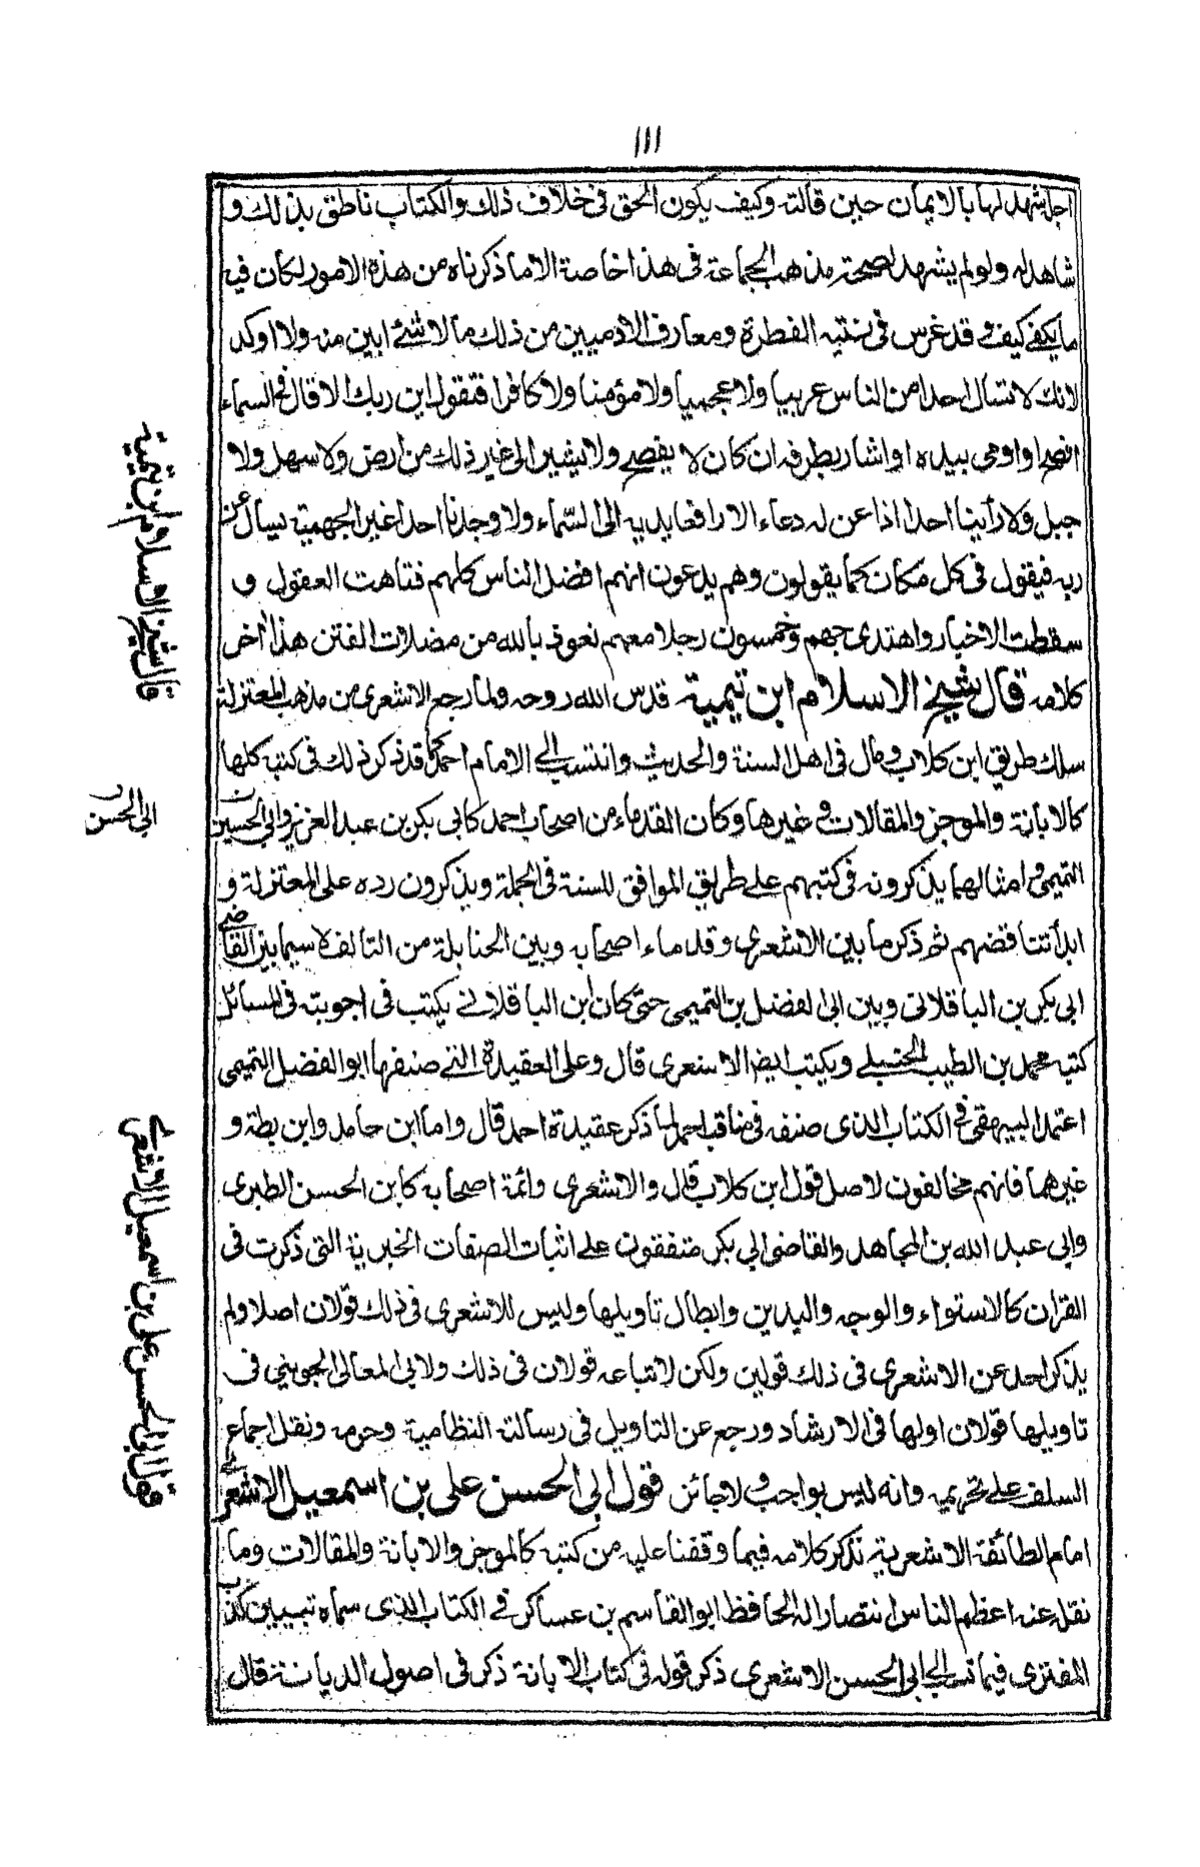 ١١١
اجل شهد لها بالايمان حين قالته وكيف يكون الحق فى خلاف ذلك والكتاب ناطق بذلك و
شاهد له ولو لم يشهد لصحة مذهب الجماعة فى هذا خاصة الا ما ذكرناه من هذه الامور لكان فيه
ما يكفے كيف وقد غرس فى بنتيه الفطرة ومعارف الآدميين من ذلك ما لا شئے ابين منه ولا اوكد
لانك لا تسال احدا من الناس عربيا ولا عجميا ولا مؤمنا ولا كافرا فتقول اين ربك الا قال فى السماء
افصح او اومى بيده او اشار بطرفه ان كان لا يفصح ولا يشير الى غير ذلك من ارض ولا سهل ولا
جبل ولا رأينا احدا اذا عن له دعاء الا رافعا يديه الى السماء ولا وجدنا احدا غير الجهمية يسأل عن
ربه فيقول فى كل مكان كما يقولون وهم يدعون انهم افضل الناس كلهم فتاهت العقول و
سقطت الاخبار واهتدى جهم وخمسون رجلا معهم نعوذ بالله من مضلات الفتن هذا آخر
كلامه قال شيخ الاسلام ابن تيمية قدس الله روحه ولما رجع الاشعرى من مذهب المعتزلة
سلك طريق ابن كلاب ومال فى اهل السنة والحديث وانتسب الے الامام احمد كما قد ذكر ذلك فى كتبه كلها
كالابانة والموجز والمقالات وغيرها وكان القدماء من اصحاب احمد كابى بكر بن عبد العزيز وابى الحسين
التميمى وامثالهما يذكرونه فى كتبهم على طريق الموافق للسنة فى الجملة ويذكرون رده على المعتزلة و
ابدأ تناقضهم ثم ذكر ما بين الاشعرى وقدماء اصحابه وبين الحنابلة من التآلف لا سيما بين القاضى
ابى بكر بن الباقلانى وبين ابى الفضل بن التميمى حتى كان ابن الباقلانے يكتب فى اجوبته فى المسائل
كتبه محمد بن الطيب الحنبلے ويكتب ايضا الاشعرى قال وعلى العقيدة التے صنفها ابو الفضل التميمى
اعتمد البيهقى فى الكتاب الذى صنفه فى مناقب احمد لما ذكر عقيدة احمد قال واما ابن حامد وابن بطة و
غيرهما فانهم مخالفون لاصل قول ابن كلاب قال والاشعرى وائمة اصحابه كابن الحسن الطبرى
وابى عبد الله بن المجاهد والقاضى ابى بكر متفقون على اثبات الصفات الخبرية التى ذكرت فى
القرآن كالاستواء والوجه واليدين وابطال تاويلها وليس للاشعرى فى ذلك قولان اصلا ولم
يذكر احد عن الاشعرى فى ذلك قولين ولكن لاتباعه قولان فى ذلك ولابى المعالى الجوينى فى
تاويلها قولان اولها فى الارشاد ورجع عن التاويل فى رسالته النظامية وحرمه ونقل اجماع
السلف على تحريمه وانه ليس بواجب ولا جائز قول ابى الحسن على بن اسمعيل الاشعرى
امام الطائفة الاشعرية نذكر كلامه فيما وقفنا عليه من كتبه كالموجز والابانة والمقالات وما
نقل عنه اعظم الناس انتصارا له الحافظ ابو القاسم بن عساكر فى الكتاب الذى سماه تبيين كذب
المفترى فيما نسب الى ابى الحسن الاشعرى ذكر قوله فى كتاب الابانة ذكر فى اصول الديانة قال
قال شيخ الاسلام ابن تيمية
ابى الحسن
قول ابى الحسن على بن اسمعيل الاشعرى